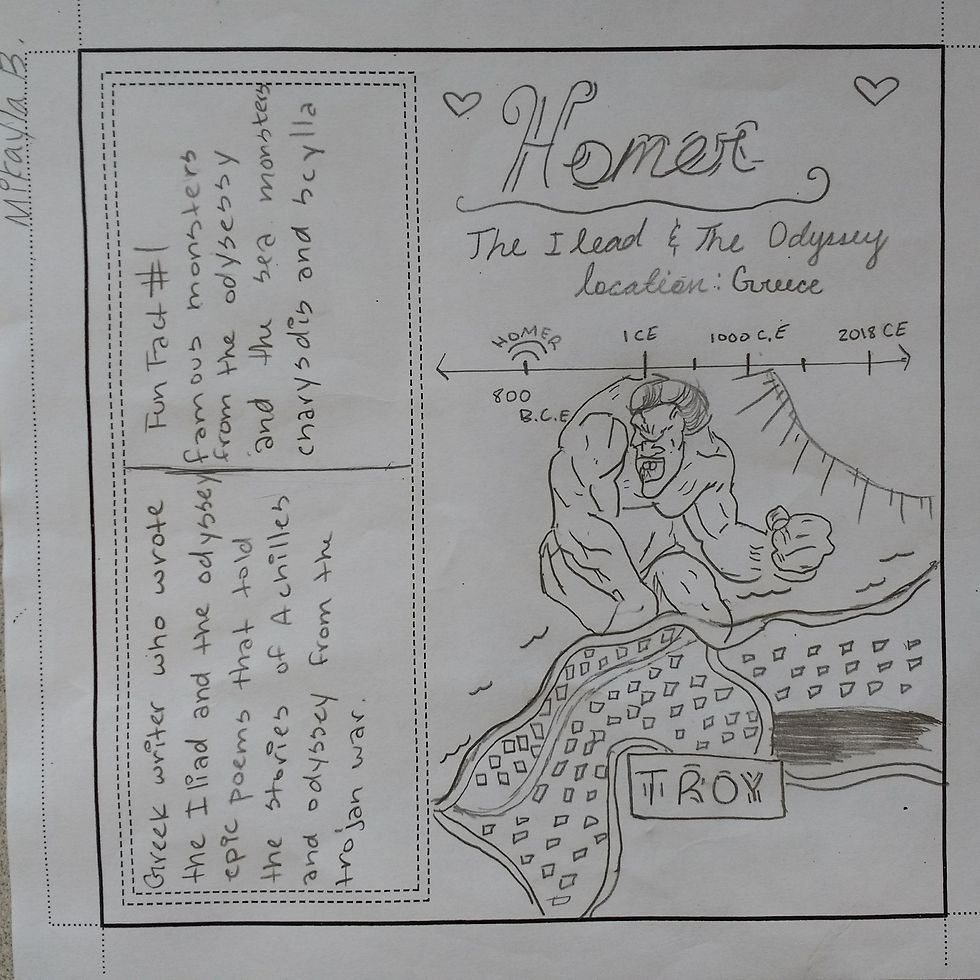 Mikayla B.
Homer
The Ilead & The Odyssey
location: Greece
HOMER
800
B.C.E
1CE
1000 C.E
2018 CE
TROY
Greek writer who wrote
the Iliad and the odyssey
epic poems that told
the stories of Achilles
and odyssey from the
trojan war.
Fun Fact #1
famous monsters
from the odysessy
and the sea monsters
charysdis and scylla